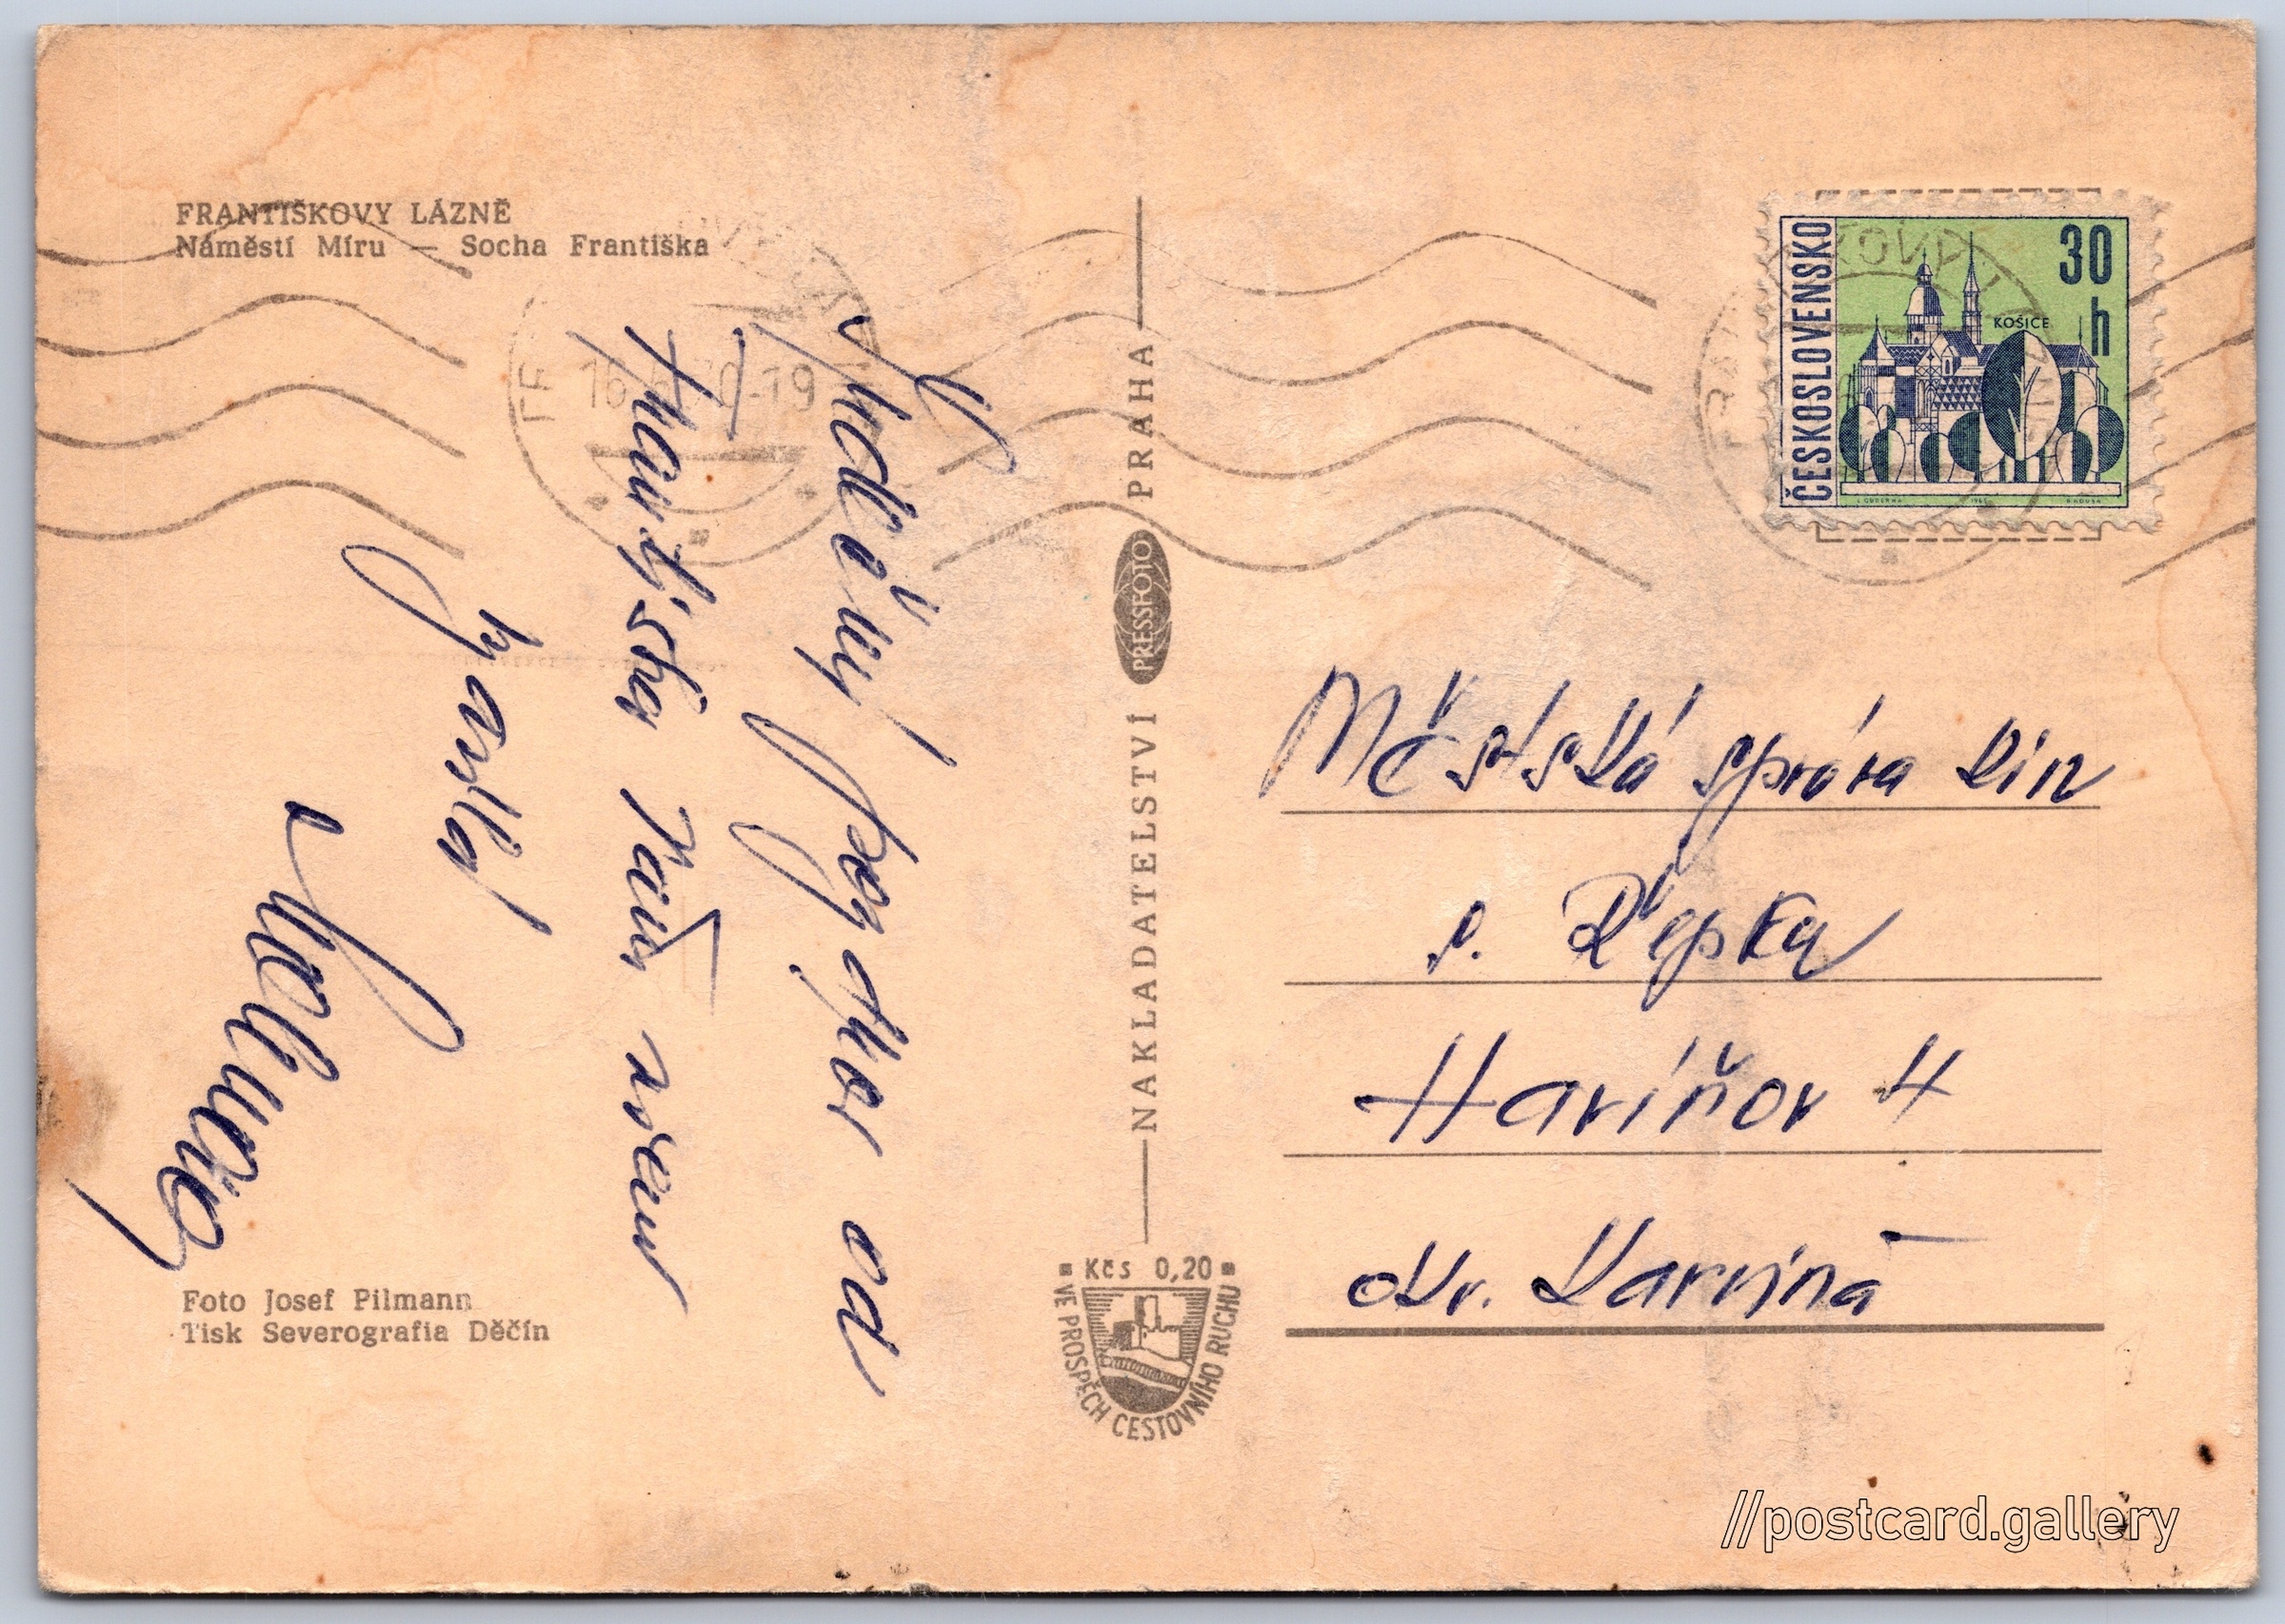 FRANTIŠKOVY LÁZNĚ
Náměstí Míru — Socha Františka
Srdečný pozdrav od
Františka Vám všem
zasílá
Foto Josef Pilmann
Tisk Severografia Děčín
NAKLADATELSTVÍ PRESSFOTO PRAHA
Kčs 0,20
VE PROSPĚCH CESTOVNÍHO RUCHU
ČESKOSLOVENSKO
30 h
KOŠICE
Městská správa kin
s. Řepka
Havířov 4
okr. Karviná
//postcard.gallery